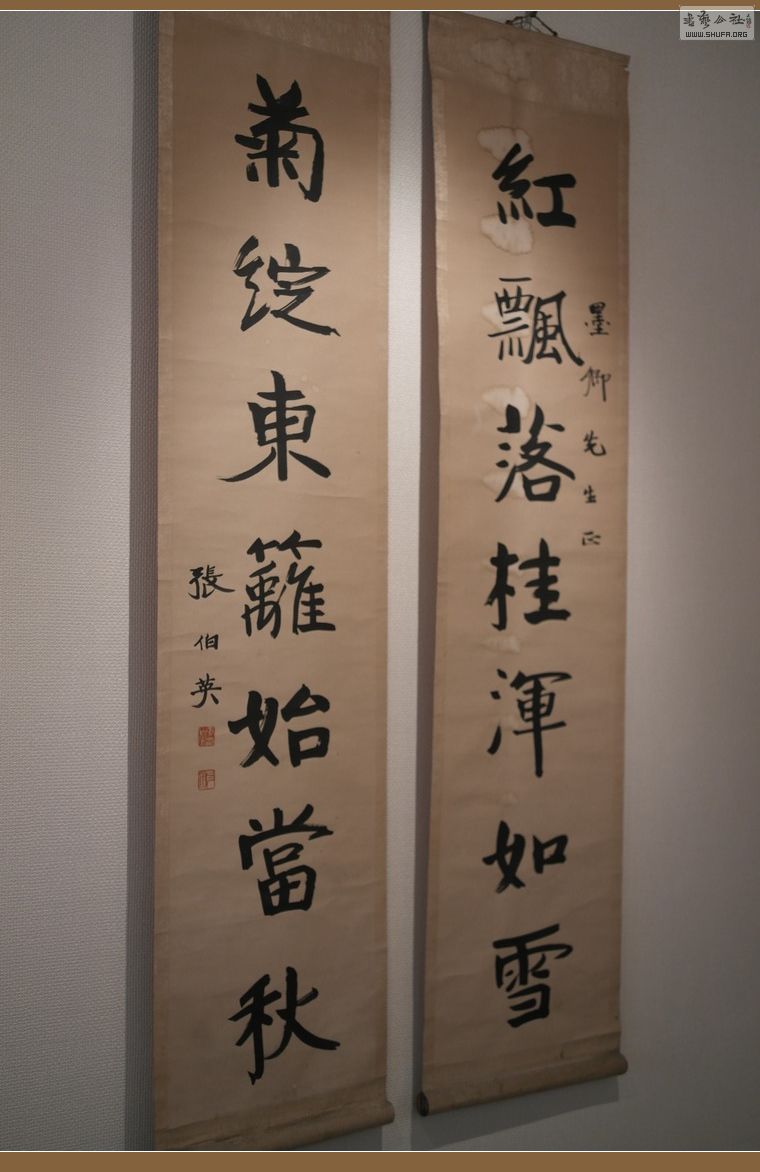 墨卿先生正
紅飄落桂渾如雪
菊綻東籬始當秋
張伯英
WWW.SHUFA.ORG